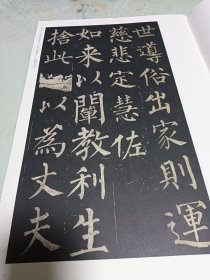 世導俗出家則運
慈悲定慧佐
如来以闡教利生
捨此以為丈夫